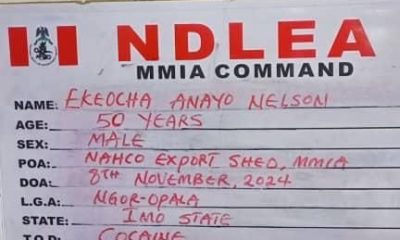 NDLEA
MMIA COMMAND
NAME: EKEOCHA ANAYO NELSON
AGE: 50 YEARS
SEX: MALE
POA: NAHCO EXPORT SHED, MMIA
DOA: 8TH NOVEMBER, 2024
L.G.A: NGOR-OPALA
STATE: IMO STATE
T.O.D: COCAINE